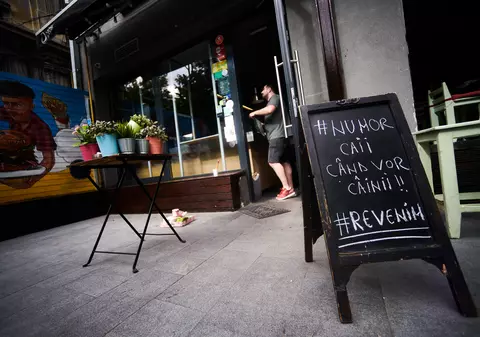 #NU MOR
CAII
CÂND VOR
CÂINII!!
#REVENIM